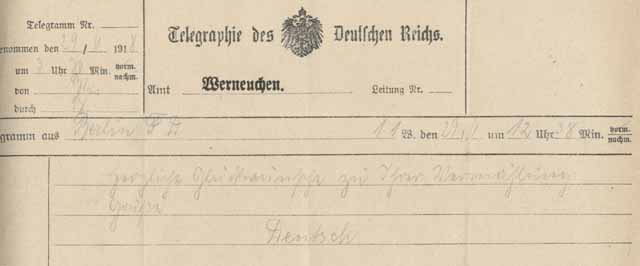 Telegramm Nr.
Telegraphie des Deutschen Reichs.
enommen den 29/1 1918
um 3 Uhr Min. vorm. nachm.
von
durch
Amt Werneuchen.
Leitung Nr.
gramm aus Berlin 11 W. den 29/1 um 12 Uhr 38 Min. vorm. nachm.
Herzliche Glückwünsche zu Ihrer Vermählung
Deutsch